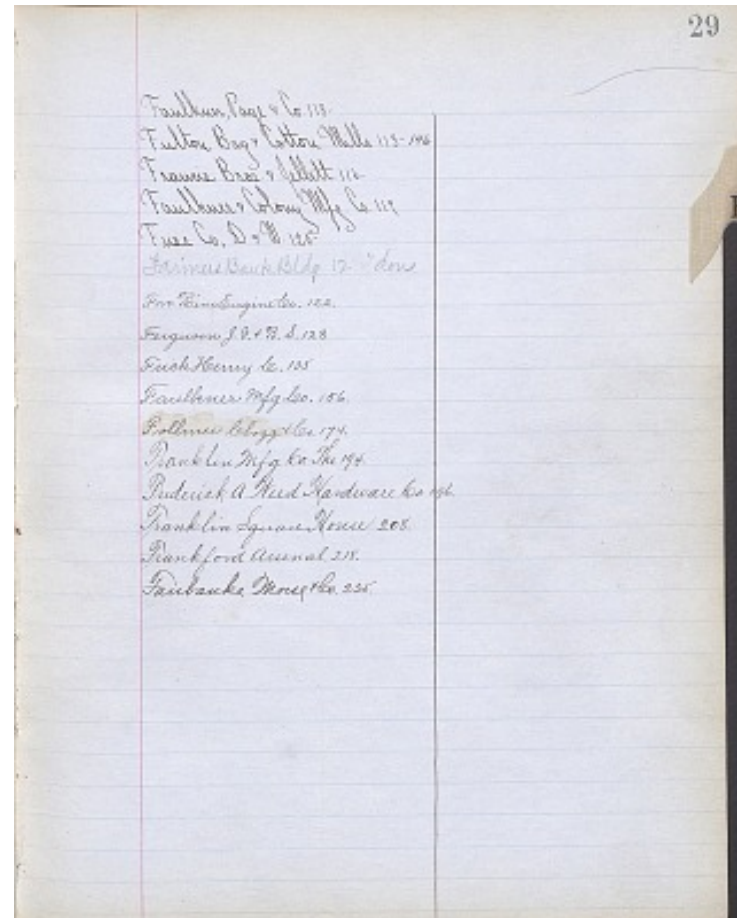 29
Faulkner, Page & Co. 113
Fulton Bag & Cotton Mills 113-
Bros & Jellett 112
Faulkner & Colony Mfg Co. 119
Co, D & M 125
Farmers Bank Bldg 12
Fire Engine Co. 122.
Ferguson J. & B. S. 128
Henry C. 135
Faulkner Mfg Co. 156.
Follmer Clogg & Co. 174.
Franklin Mfg Co The 194.
Frederick A Hardware Co 196.
Franklin Square House 208.
Frankford Arsenal 218.
Fairbanks Morse & Co. 225.